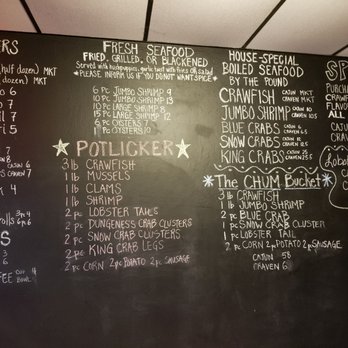 ERS
(half dozen) MKT
dozen) MKT
FRESH SEAFOOD
FRIED, GRILLED, OR BLACKENED
Served with hushpuppies, garlic twist with fries OR salad
*PLEASE INFORM US IF YOU DO NOT WANT SPICE*
6 PC JUMBO SHRIMP 9
10 PC JUMBO SHRIMP 13
10 PC LARGE SHRIMP 8
15 PC LARGE SHRIMP
OYSTERS
OYSTERS 10
POTLICKER
3 lb CRAWFISH
1 lb MUSSELS
1 lb CLAMS
1 lb SHRIMP
2 PC LOBSTER TAILS
2 PC DUNGENESS CRAB CLUSTERS
2 PC SNOW CRAB CLUSTERS
2 PC KING CRAB LEGS
2 PC CORN 2 PC POTATO 2 PC SAUSAGE
HOUSE-SPECIAL
BOILED SEAFOOD
BY THE POUND
CRAWFISH CAJUN MKT CRAVEN MKT
JUMBO SHRIMP
BLUE CRABS
SNOW CRABS
KING CRABS
The CHUM Bucket
3 lb CRAWFISH
1 lb JUMBO SHRIMP
2 PC BLUE CRAB
1 PC SNOW CRAB CLUSTER
1 PC LOBSTER TAIL
2 PC CORN 2 PC POTATO 2 PC SAUSAGE
CAJUN 58
CRAVEN 60
SP
PURCHA
CRAW
FLAVO
ALL
rolls
FEE